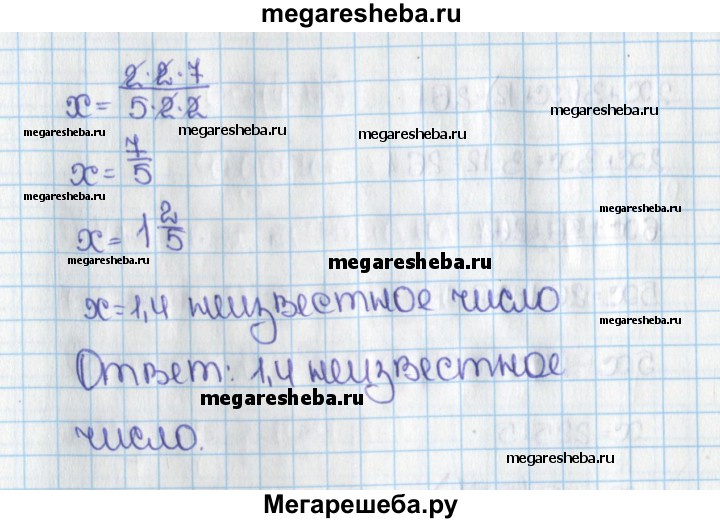 megaresheba.ru
x = 2·2·7 / 5·2·2
megaresheba.ru
megaresheba.ru
megaresheba.ru
x = 7/5
megaresheba.ru
megaresheba.ru
x = 1 2/5
megaresheba.ru
megaresheba.ru
x = 1,4 неизвестное число
megaresheba.ru
Ответ: 1,4 неизвестное
megaresheba.ru
число.
megaresheba.ru
Мегарешеба.ру